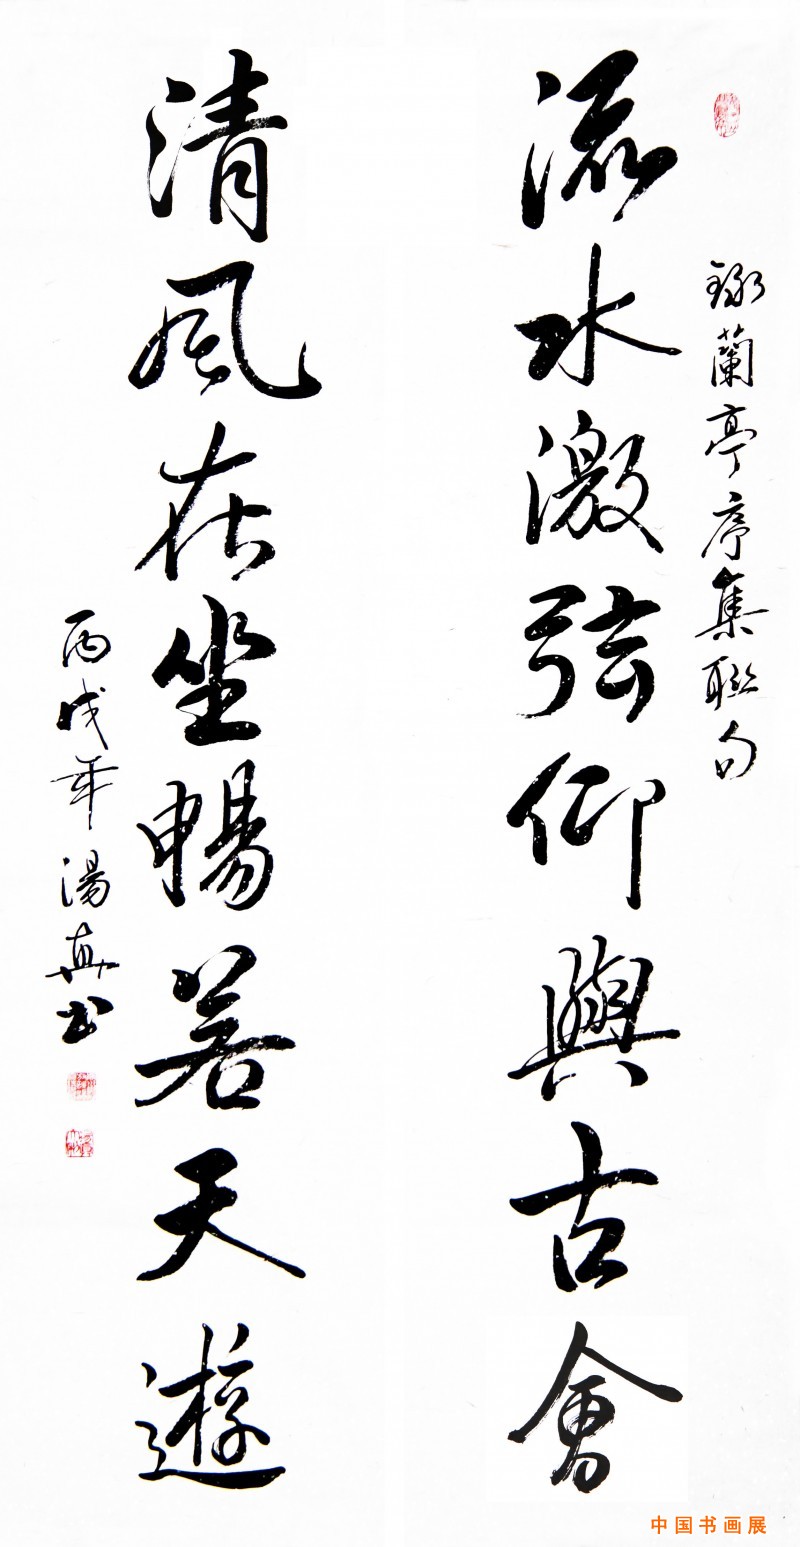 錄蘭亭序集聯句
流水激弦仰與古會
清風在坐暢若天遊
丙戌年湯真书
中国书画展